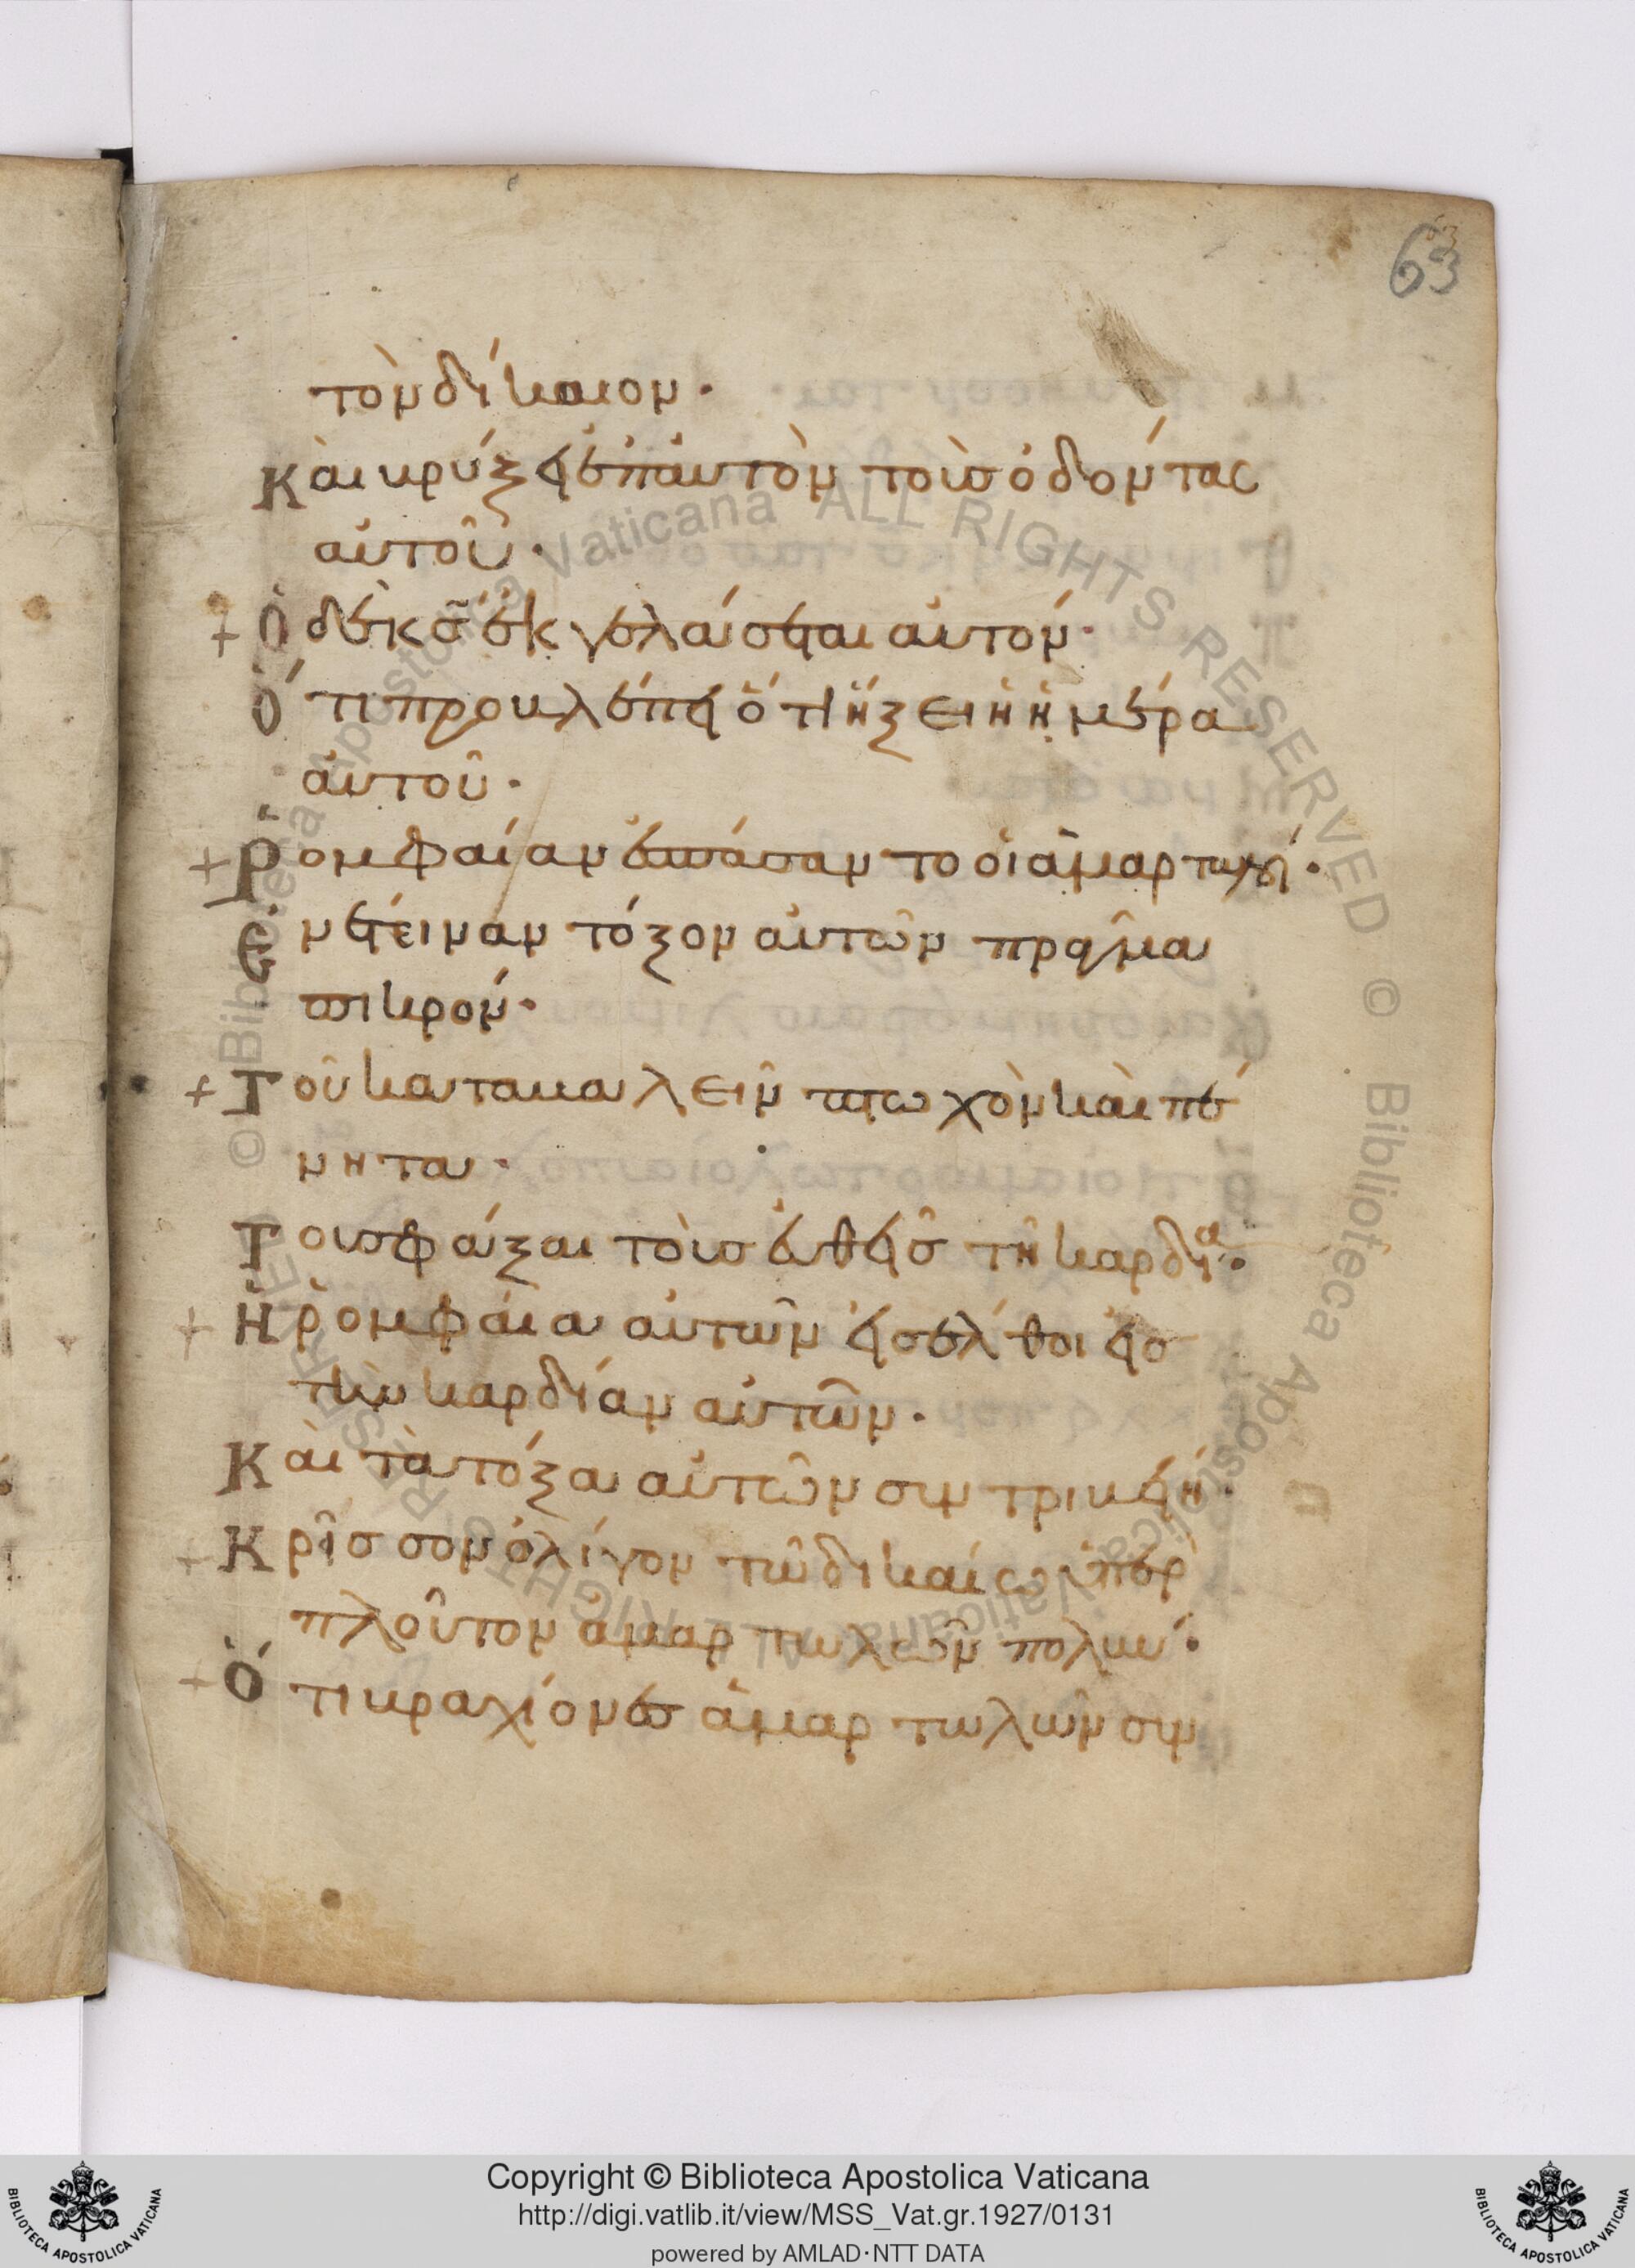 63
τὸν δίκαιον·
Καὶ βρύξει ἐπ αὐτὸν τοὺσ ὀδόντας
αὐτοῦ·
+ Ὁ δὲ κσ̃ ἐκγελάσεται αὐτόν·
Ὅτι προβλέπει ὅτι ἥξει ἡ ἡμέρα
αὐτοῦ·
+ Ῥομφαίαν ἐσπάσαντο οἱ ἁμαρτωλοί·
Ἐνέτειναν τόξον αὐτῶν πρᾶγμα
πικρόν·
+ Τοῦ καταβαλεῖν πτωχὸν καὶ πέ
νητα·
Τοῦ σφάξαι τοὺσ εὐθεῖσ τῆ καρδία·
+ Ἡ ῥομφαία αὐτῶν εἰσέλθοι εἰσ
τὴν καρδίαν αὐτῶν·
Καὶ τὰ τόξα αὐτῶν συντριβείη·
+ Κρεῖσσον ὀλίγον τῶ δικαίω ὑπὲρ
πλοῦτον ἁμαρτωλῶν πολύν·
+ Ὅτι βραχίονεσ ἁμαρτωλῶν συν
Copyright © Biblioteca Apostolica Vaticana
http://digi.vatlib.it/view/MSS_Vat.gr.1927/0131
powered by AMLAD·NTT DATA
BIBLIOTECA APOSTOLICA VATICANA
BIBLIOTECA APOSTOLICA VATICANA
© Biblioteca Apostolica Vaticana ALL RIGHTS RESERVED
© Biblioteca Apostolica Vaticana ALL RIGHTS RESERVED